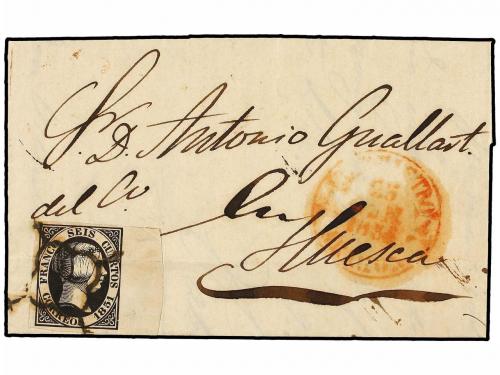 Sr. D. Antonio Guallart.
del Co.
en
Huesca
FRANCO SEIS CUARTOS
CORREOS 1851